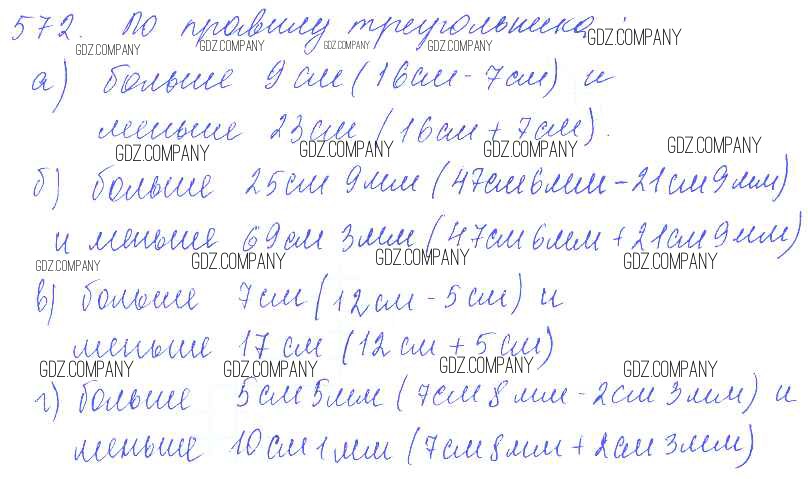 572. По правилу треугольника:
GDZ.COMPANY GDZ.COMPANY GDZ.COMPANY GDZ.COMPANY GDZ.COMPANY
а) больше 9 см (16 см - 7 см) и
меньше 23 см (16 см + 7 см).
GDZ.COMPANY GDZ.COMPANY GDZ.COMPANY GDZ.COMPANY
б) больше 25 см 9 мм (47 см 6 мм - 21 см 9 мм)
и меньше 69 см 3 мм (47 см 6 мм + 21 см 9 мм)
GDZ.COMPANY GDZ.COMPANY GDZ.COMPANY GDZ.COMPANY
в) больше 7 см (12 см - 5 см) и
меньше 17 см (12 см + 5 см)
GDZ.COMPANY GDZ.COMPANY GDZ.COMPANY GDZ.COMPANY
г) больше 5 см 5 мм (7 см 8 мм - 2 см 3 мм) и
меньше 10 см 1 мм (7 см 8 мм + 2 см 3 мм)